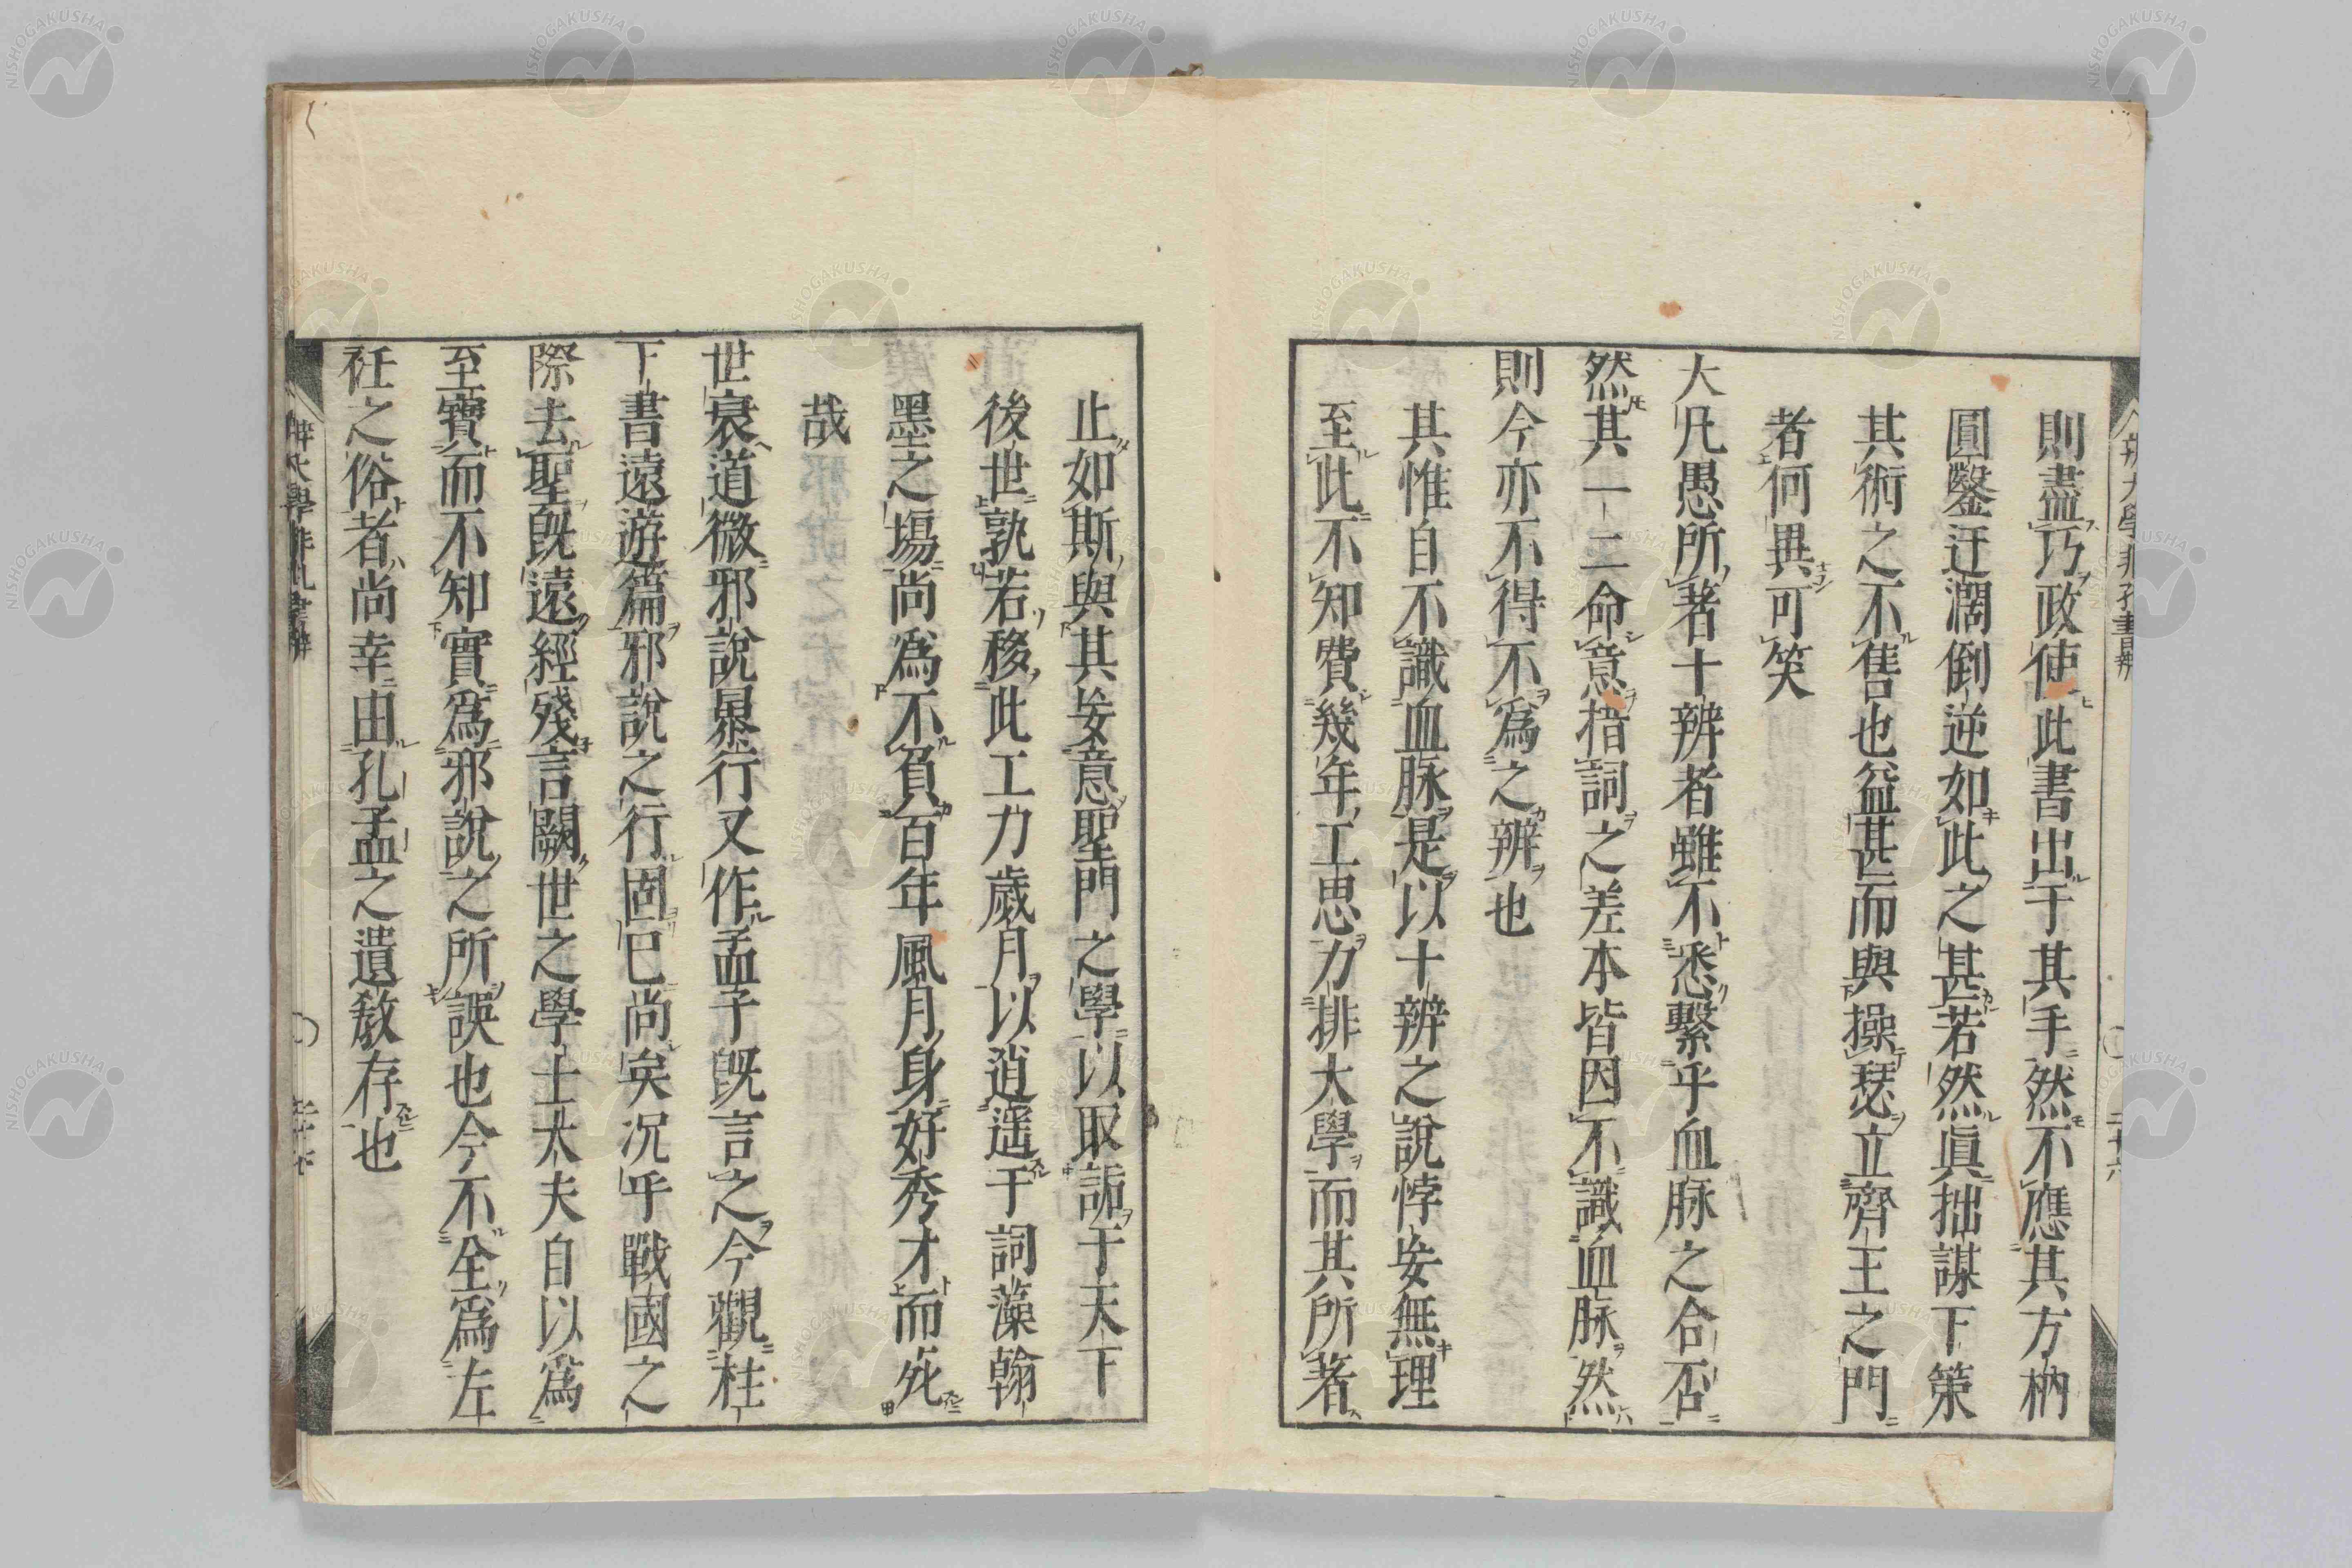 則盡巧政使此書出于其手然不應其方枘
圓鑿迂濶倒逆如此之甚若然眞拙謀下策
其術之不售也益甚而與操瑟立齊王之門
者何異可笑
大凡愚所著十辨者雖不悉繫乎血脉之合否
然其一二命意措詞之差本皆因不識血脉然
則今亦不得不爲之辨也
其惟自不識血脉是以十辨之說悖妄無理
至此不知費幾年工思力排大學而其所著
止如斯與其妄意聖門之學以取詬于天下
後世孰若移此工力歲月以逍遥于詞藻翰
墨之場尚爲不負百年風月身好秀才而死
哉
世衰道微邪說暴行又作孟子旣言之今觀桂
下書遠游篇邪說之行固巳尚矣况乎戰國之
際去聖旣遠經殘言闕世之學士大夫自以爲
至寶而不知實爲邪說之所誤也今不全爲左
衽之俗者尚幸由孔孟之遺敎存也
辨大學非孔書辨
二十六
辨大學非孔書辨
NISHOGAKUSHA